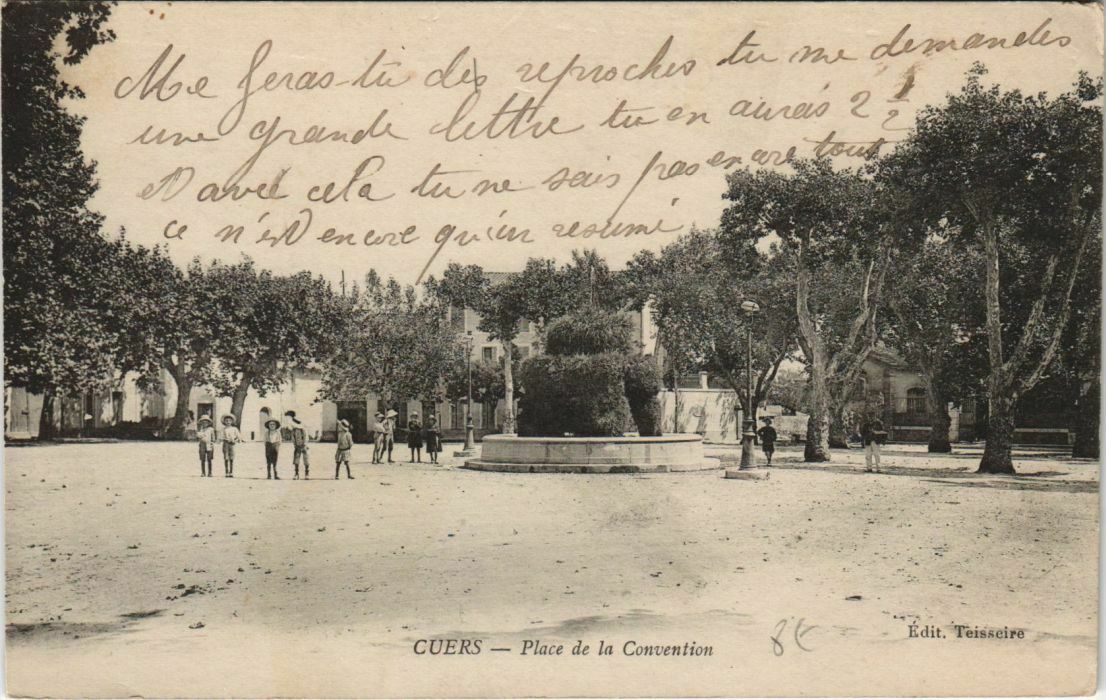 Me feras-tu des reproches tu me demandes
une grande lettre tu en aurais 2 1/2
Et avec cela tu ne sais pas encore tout
ce n'est encore qu'un resumé
CUERS — Place de la Convention
8€
Édit. Teisseire